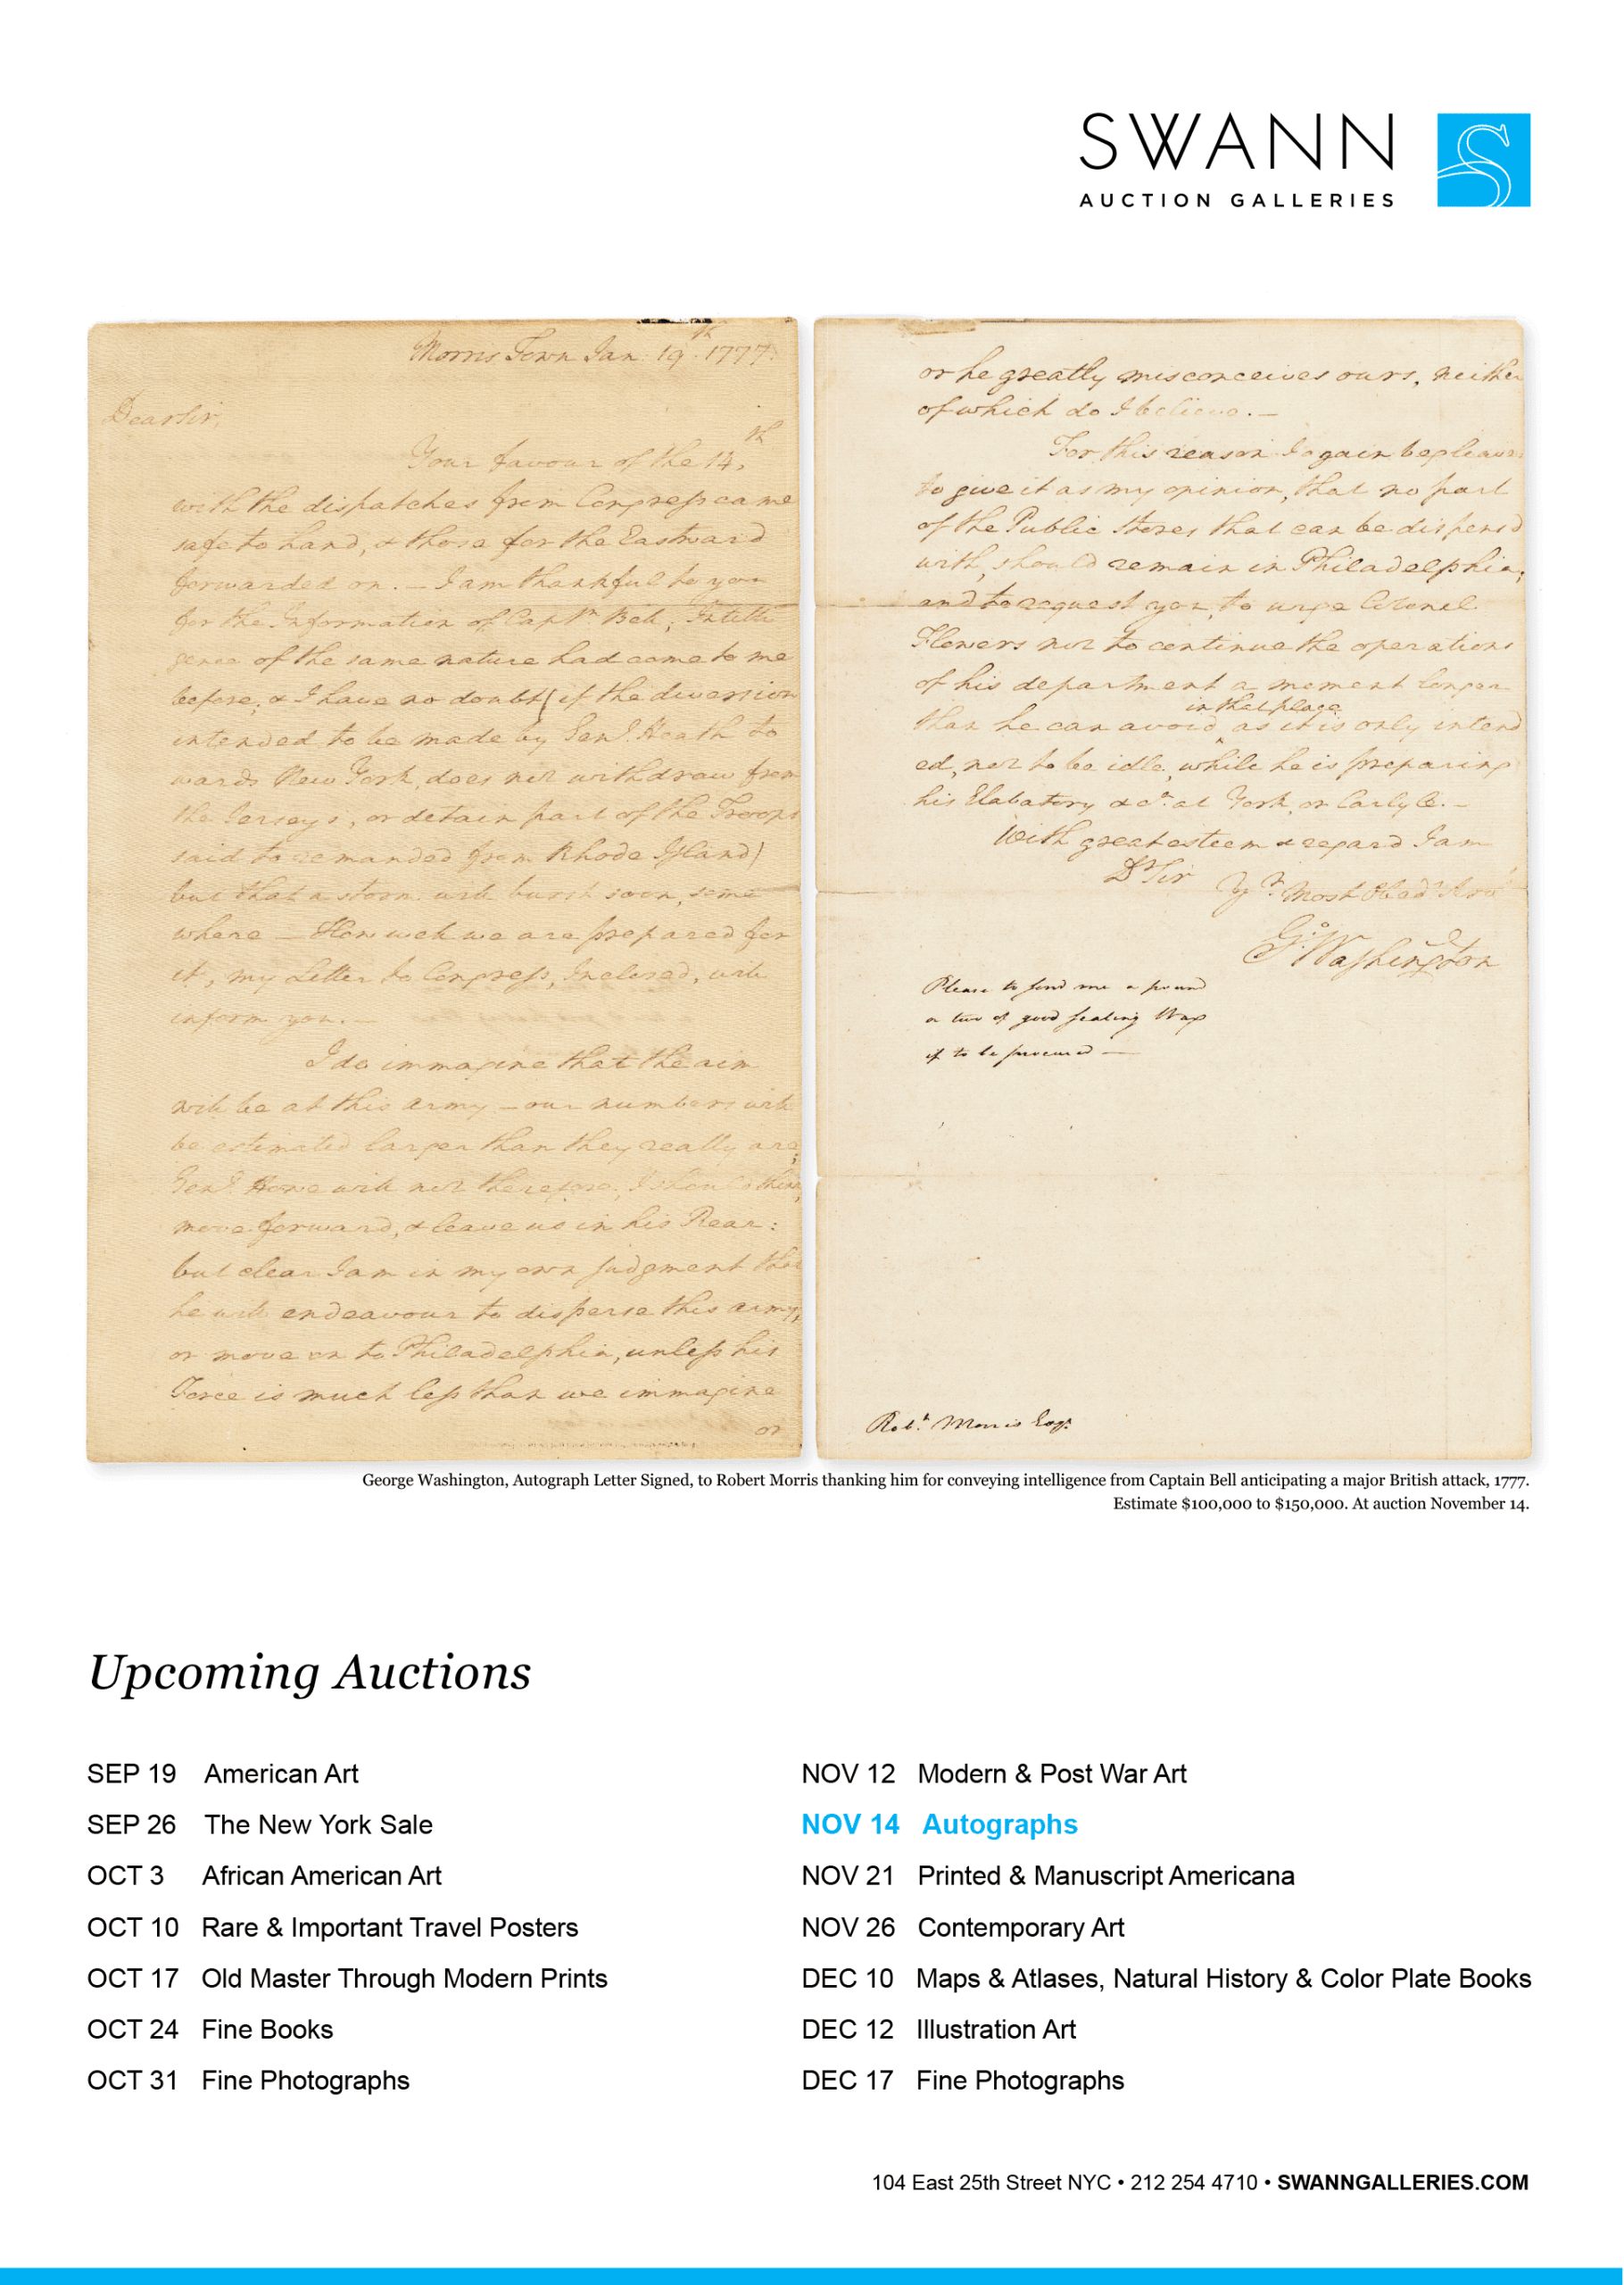 SWANN
AUCTION GALLERIES
Morris Town Jan. 19th 1777.
Dear Sir,
Your favour of the 14th,
with the dispatches from Congress came
safe to hand, & those for the Eastward
forwarded on. — I am thankful to you
for the Information of Captn Bell; Intelli
gence of the same nature had come to me
before, & I have no doubt (if the diversion
intended to be made by Genl. Heath to
wards New York, does not withdraw from
the Jerseys, or detain part of the Troops
said to remanded from Rhode Island)
but that a storm will burst soon, some
where — How well we are prepared for
it, my Letter to Congress, Inclosed, will
inform you. —
I do immagine that the aim
will be at this army — our numbers will
be estimated larger than they really are;
Genl Howe will not therefore, I should think,
move forward, & leave us in his Rear:
but clear I am in my own judgment that
he will endeavour to disperse this army,
or move on to Philadelphia, unless his
Force is much less than we immagine
or
or he greatly misconceives ours, neither
of which do I believe. —
For this reason I again beg leave
to give it as my opinion, that no part
of the Public Stores that can be dispens'd
with, should remain in Philadelphia;
and to request you, to urge Colonel
Flowers not to continue the operations
of his department a moment longer
in that place
than he can avoid, as it is only intend
ed, not to be idle, while he is preparing
his Elabatory & ca. at York, or Carlyle. —
With great esteem & regard I am
Dr Sir
Yr. Most Obedt Servt
Go: Washington
Please to send me a pound
or two of good sealing Wax
if to be procured —
Robt. Morris Esqr.
George Washington, Autograph Letter Signed, to Robert Morris thanking him for conveying intelligence from Captain Bell anticipating a major British attack, 1777.
Estimate $100,000 to $150,000. At auction November 14.
Upcoming Auctions
SEP 19 American Art
SEP 26 The New York Sale
OCT 3 African American Art
OCT 10 Rare & Important Travel Posters
OCT 17 Old Master Through Modern Prints
OCT 24 Fine Books
OCT 31 Fine Photographs
NOV 12 Modern & Post War Art
NOV 14 Autographs
NOV 21 Printed & Manuscript Americana
NOV 26 Contemporary Art
DEC 10 Maps & Atlases, Natural History & Color Plate Books
DEC 12 Illustration Art
DEC 17 Fine Photographs
104 East 25th Street NYC • 212 254 4710 • SWANNGALLERIES.COM